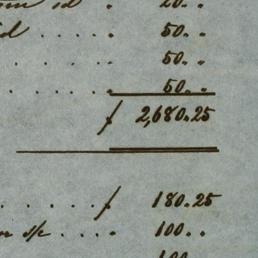 id . 20..
id ..... 50..
.... 50..
..... 50..
ƒ 2,680.25
..... ƒ 180.25
s/c .... 100..
100..